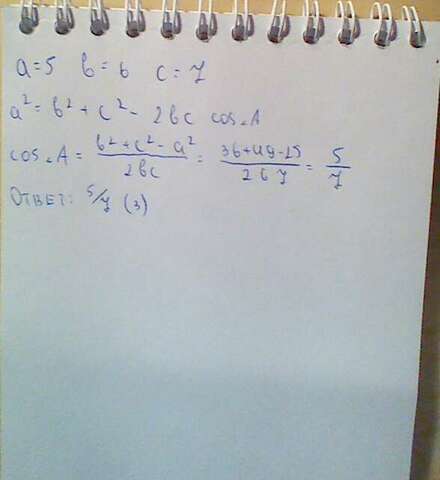 a=5 b=6 c=7
a²=b²+c²- 2bc cos∠A
cos∠A = (b²+c²-a²)/(2bc) = (36+49-25)/(2 6 7) = 5/7
ОТВЕТ: 5/7 (3)